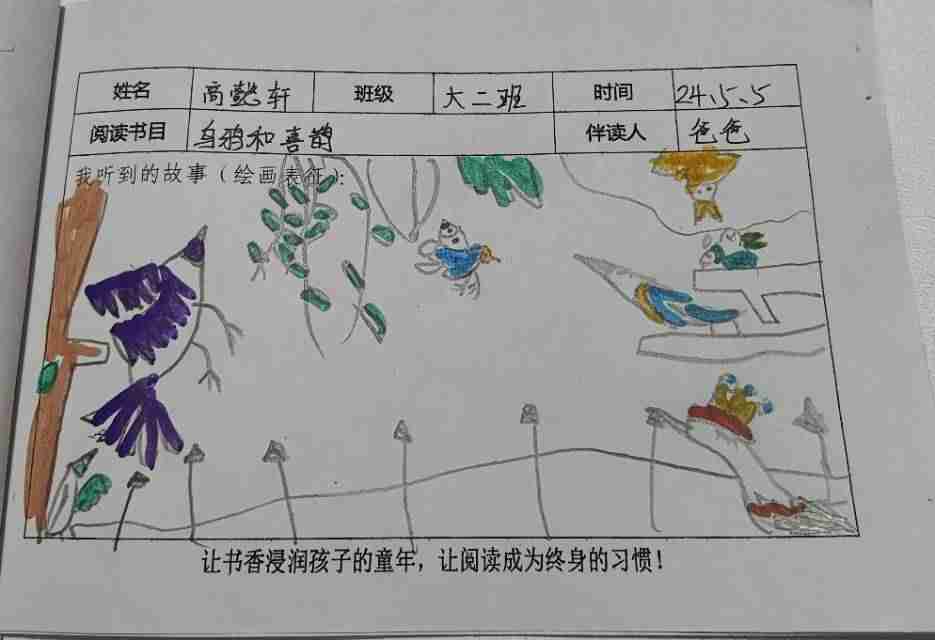 姓名 高懿轩 班级 大二班 时间 24、5、5
阅读书目 乌鸦和喜鹊 伴读人 爸爸
我听到的故事（绘画表征）：
让书香浸润孩子的童年，让阅读成为终身的习惯！